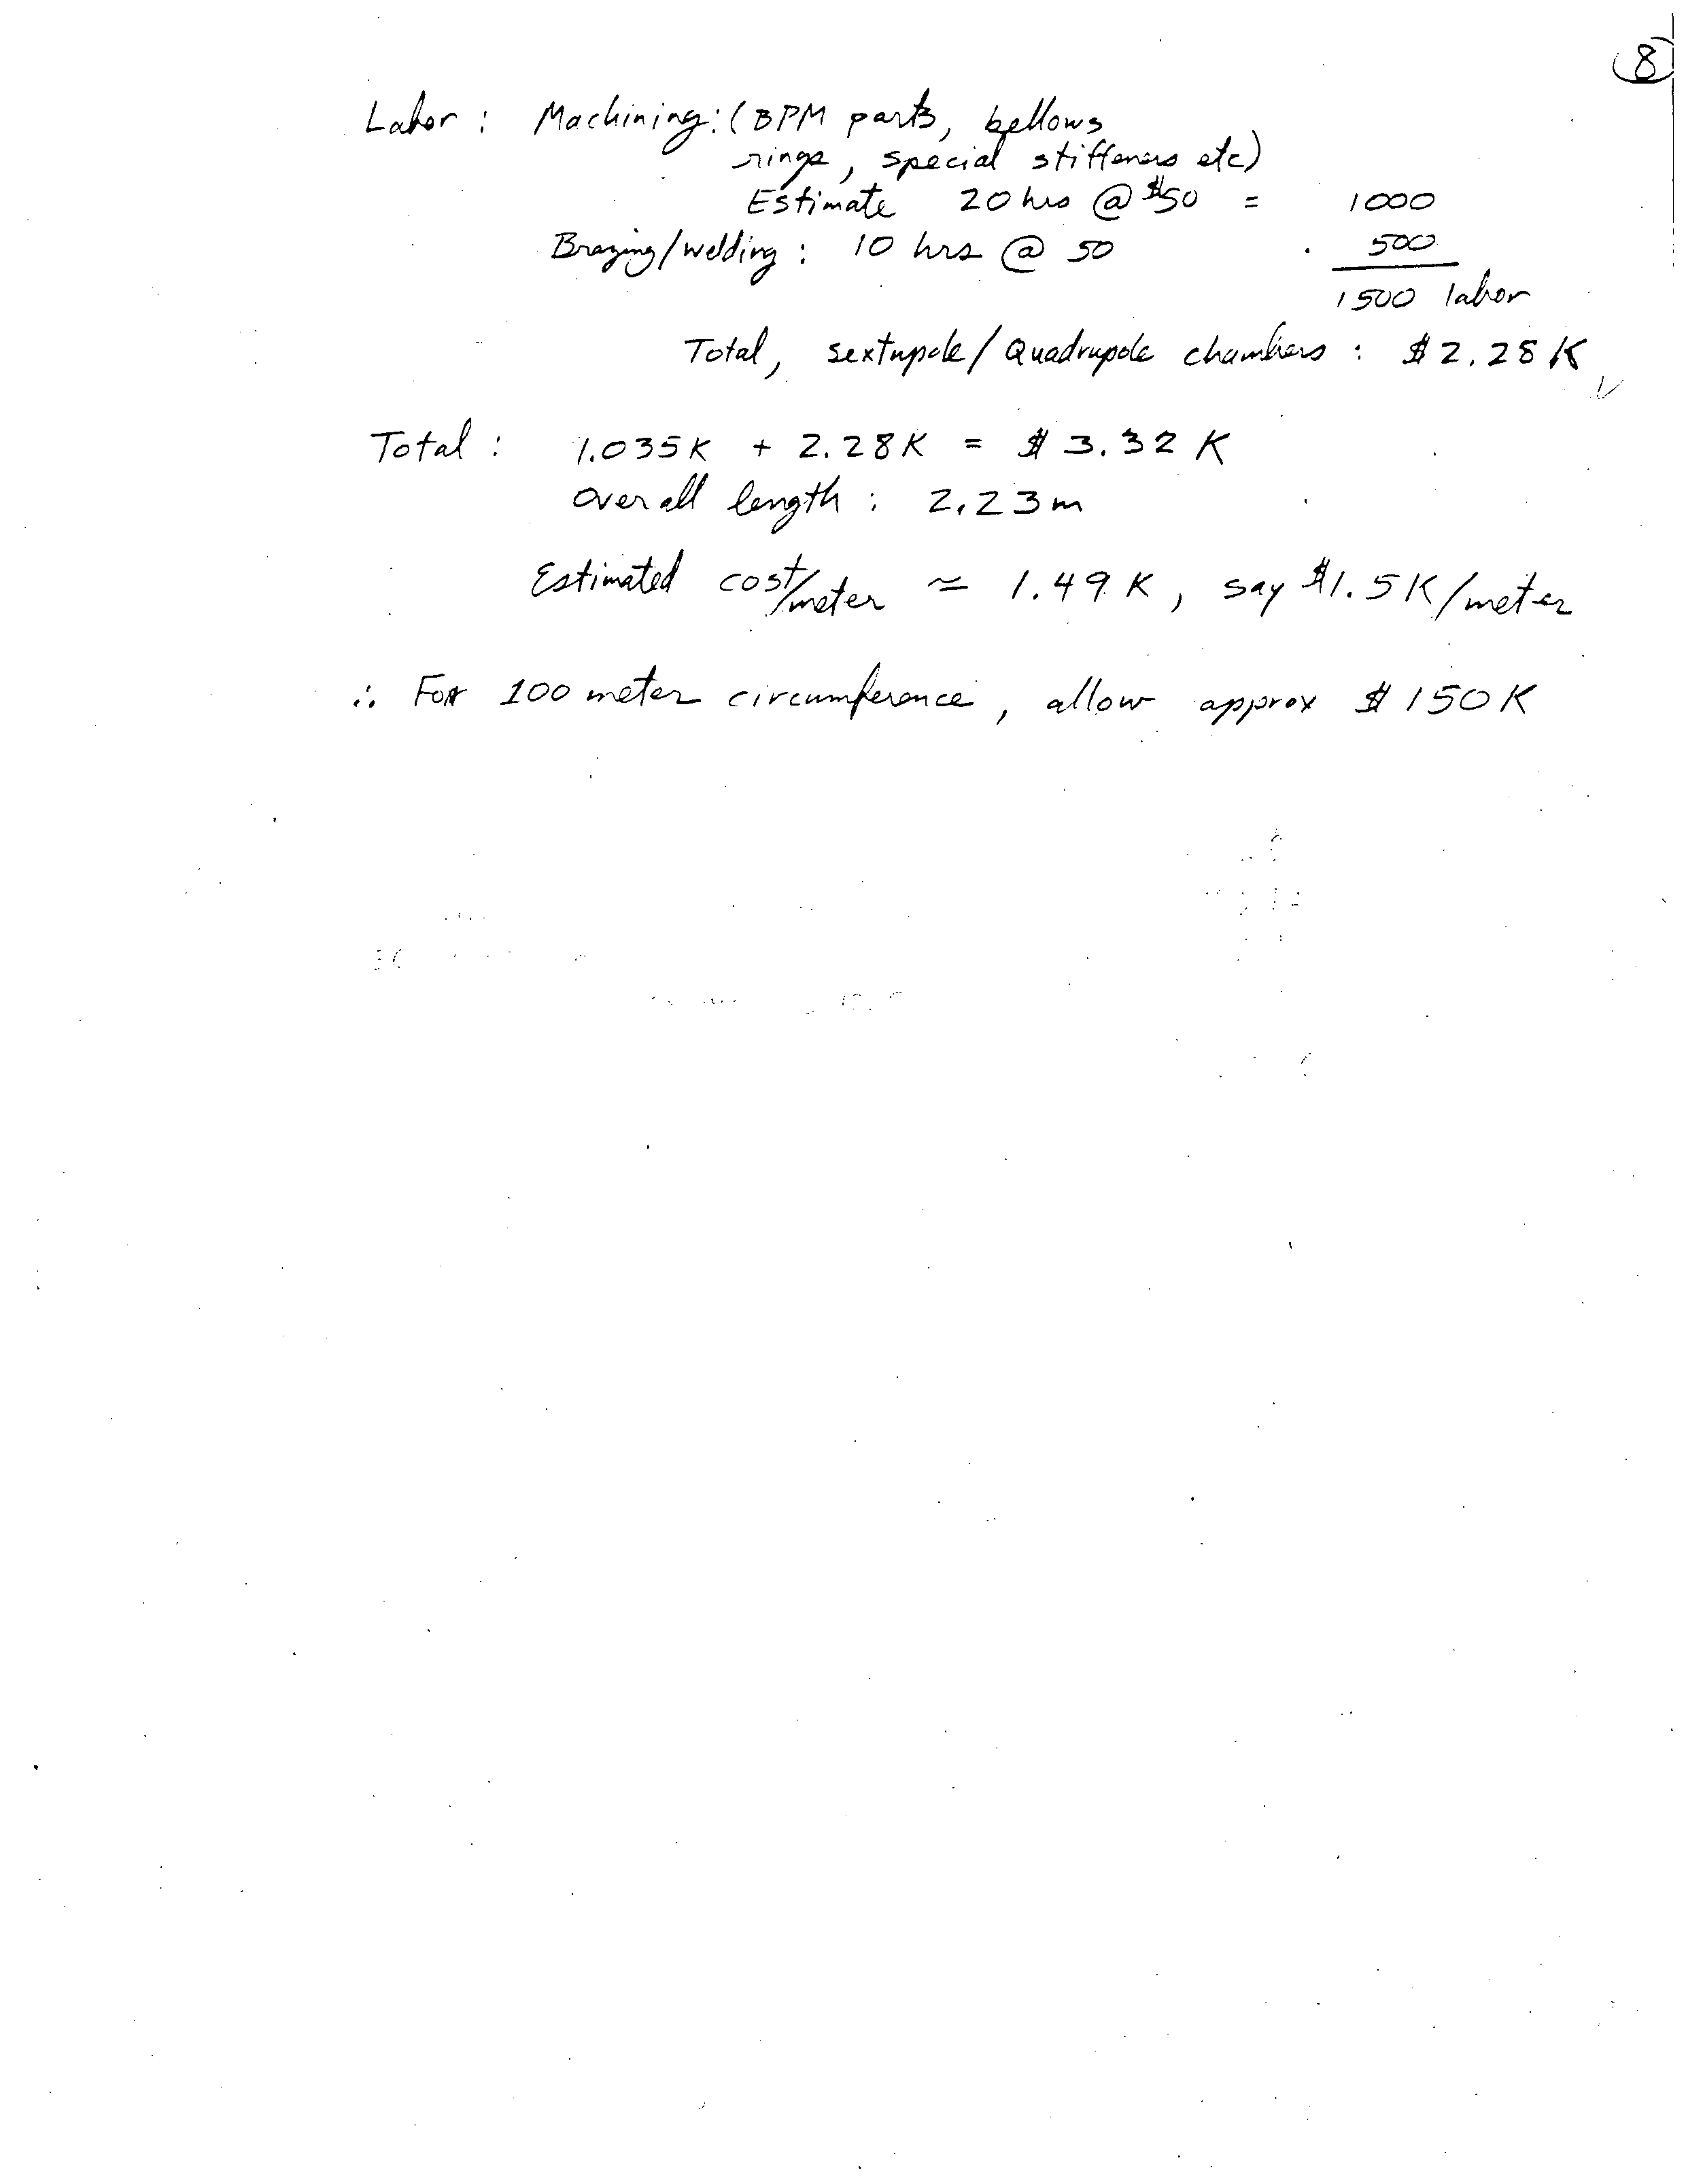 8
Labor : Machining: (BPM parts, bellows
rings, special stiffeners etc)
Estimate 20 hrs @ $50 = 1000
Brazing/welding : 10 hrs @ 50 500
1500 labor
Total, sextupole/Quadrupole chambers : $2.28K
Total : 1.035K + 2.28K = $3.32K
Overall length : 2.23m
Estimated cost/meter ≃ 1.49K, say $1.5K/meter
∴ For 100 meter circumference, allow approx $150K